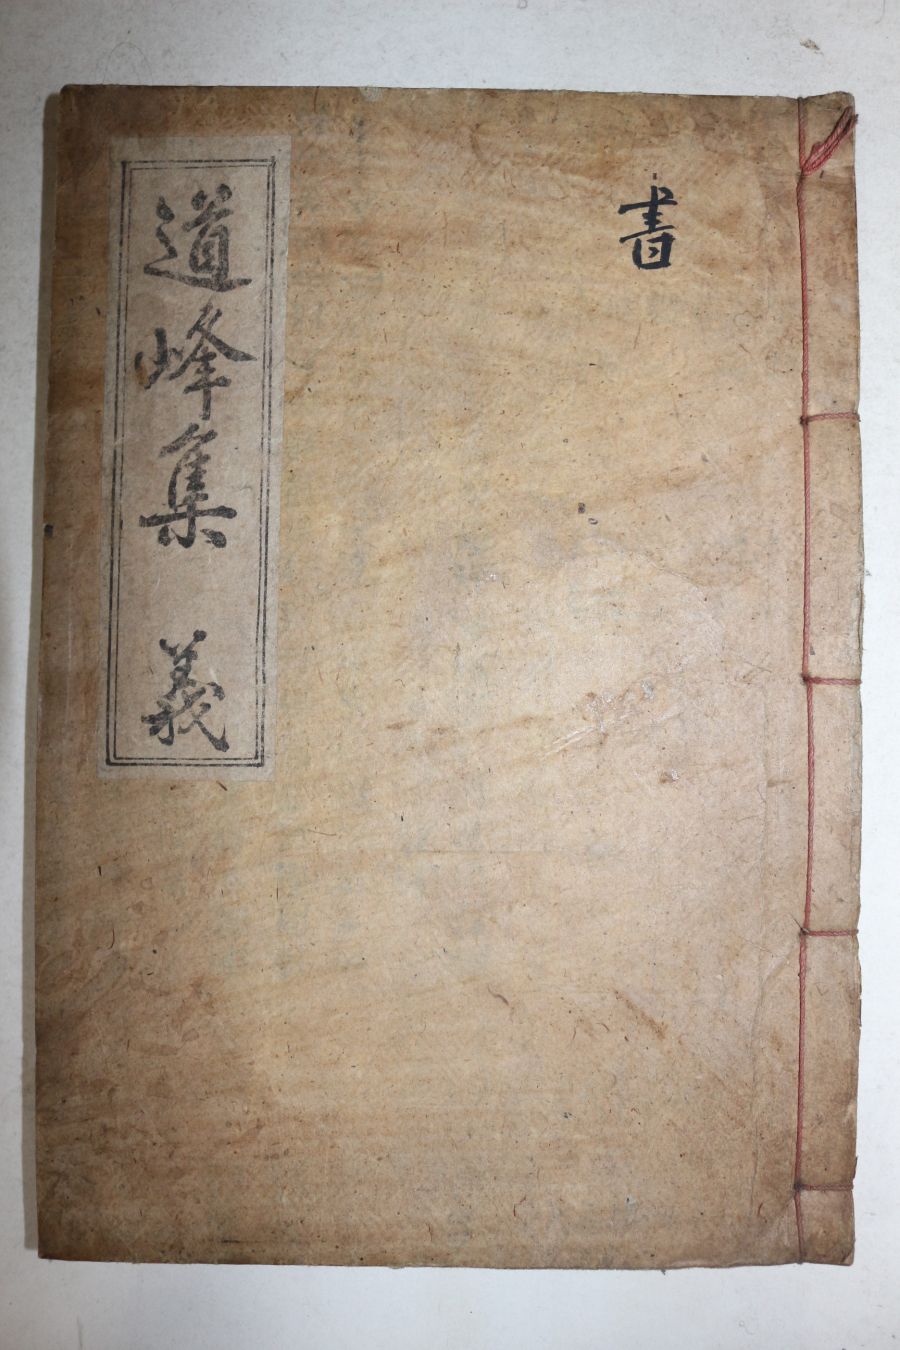 書
道峰集 義